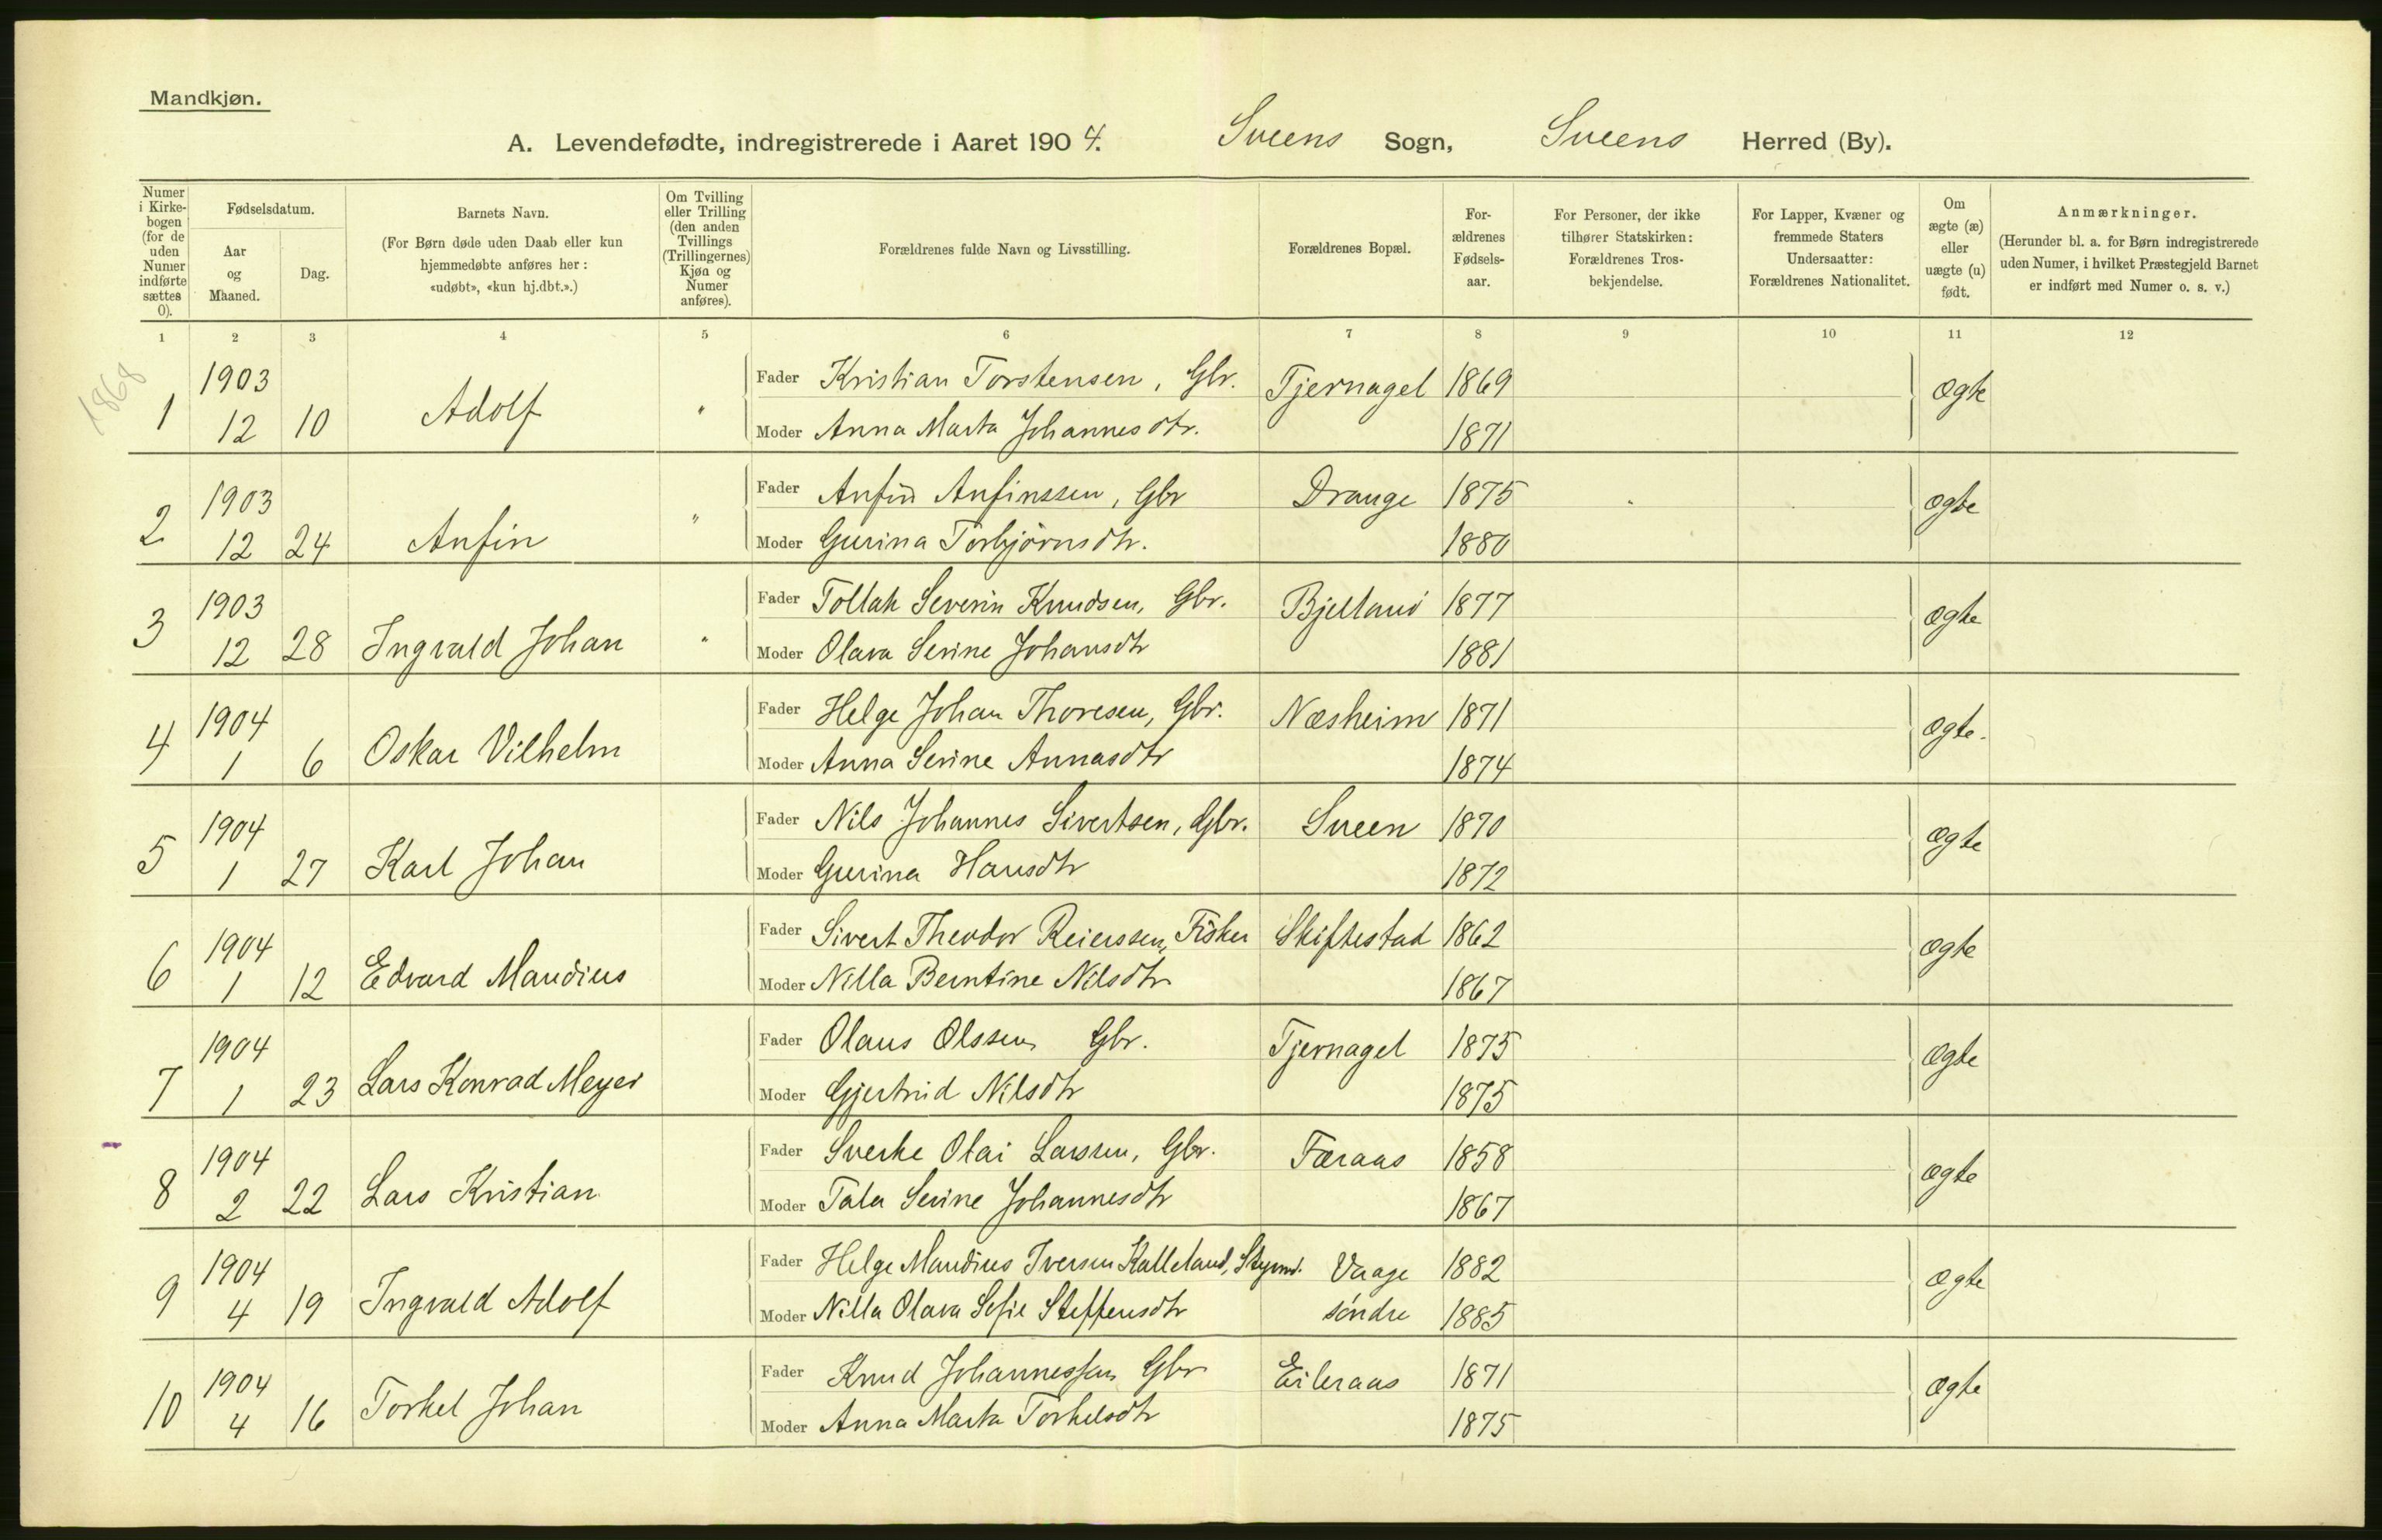 Mandkjøn.
A. Levendefødte, indregistrerede i Aaret 1904. Sveens Sogn, Sveens Herred (By).
Numer i Kirkebogen (for de uden Numer indførte sættes 0).
Fødselsdatum.
Aar og Maaned.
Dag.
Barnets Navn.
(For Børn døde uden Daab eller kun hjemmedøbte anføres her: «udøbt», «kun hj.dbt.».)
Om Tvilling eller Trilling (den anden Tvillings (Trillingernes) Kjøn og Numer anføres).
Forældrenes fulde Navn og Livsstilling.
Forældrenes Bopæl.
For-ældrenes Fødsels-aar.
For Personer, der ikke tilhører Statskirken: Forældrenes Tros-bekjendelse.
For Lapper, Kvæner og fremmede Staters Undersaatter: Forældrenes Nationalitet.
Om ægte (æ) eller uægte (u) født.
Anmærkninger.
(Herunder bl. a. for Børn indregistrerede uden Numer, i hvilket Præstegjeld Barnet er indført med Numer o. s. v.)
1 2 3 4 5 6 7 8 9 10 11 12
1868
1903 Fader Kristian Torstensen, Gbr. Tjernagel 1869 ægte
1 12 10 Adolf " Moder Anna Marta Johannesdtr. 1871
1903 Fader Anfin Anfinssen, Gbr Drange 1875 ægte
2 12 24 Anfin " Moder Gurina Torbjørnsdtr. 1880
1903 Fader Tollak Severin Knudsen, Gbr. Bjelland 1877 ægte
3 12 28 Ingvald Johan " Moder Olava Serine Johansdtr 1881
1904 Fader Helge Johan Thoresen, Gbr. Næsheim 1871 ægte.
4 1 6 Oskar Vilhelm Moder Anna Serine Annasdtr 1874
1904 Fader Nils Johannes Sivertsen, Gbr. Sveen 1870 ægte
5 1 27 Karl Johan Moder Gurina Hansdtr 1872
1904 Fader Sivert Theodor Reierssen, Fisker Skiftestad 1862 ægte
6 1 12 Edvard Mandius Moder Nilla Berntine Nilsdtr 1867
1904 Fader Olaus Olssen Gbr. Tjernagel 1875 ægte
7 1 23 Lars Konrad Meyer Moder Gjertrud Nilsdtr 1875
1904 Fader Sverke Olai Larssen, Gbr. Færaas 1858 ægte
8 2 22 Lars Kristian Moder Tala Serine Johannesdtr 1867
1904 Fader Helge Mandius Iversen Kalleland, Styrmd. Vaage 1882 ægte
9 4 19 Ingvald Adolf Moder Nilla Olava Sofie Steffensdtr søndre 1885
1904 Fader Knud Johannessen Gbr Eileraas 1871 ægte
10 4 16 Torkel Johan Moder Anna Marta Torkelsdtr 1875